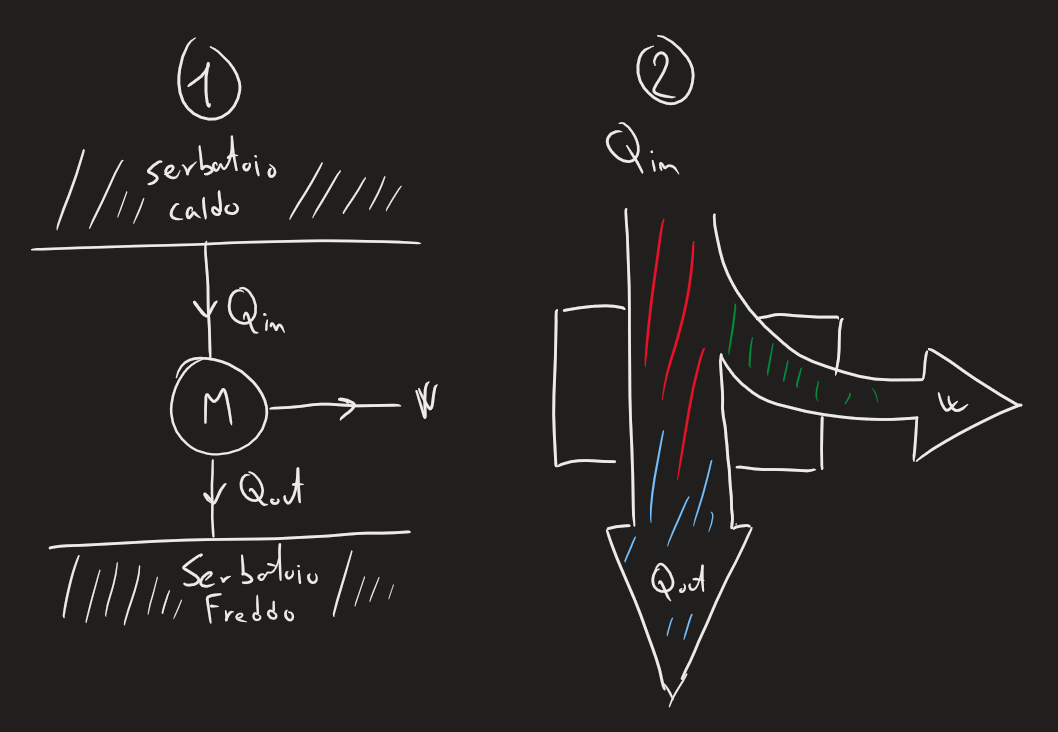 1
serbatoio
caldo
Qin
M
W
Qout
Serbatoio
Freddo
2
Qin
W
Qout